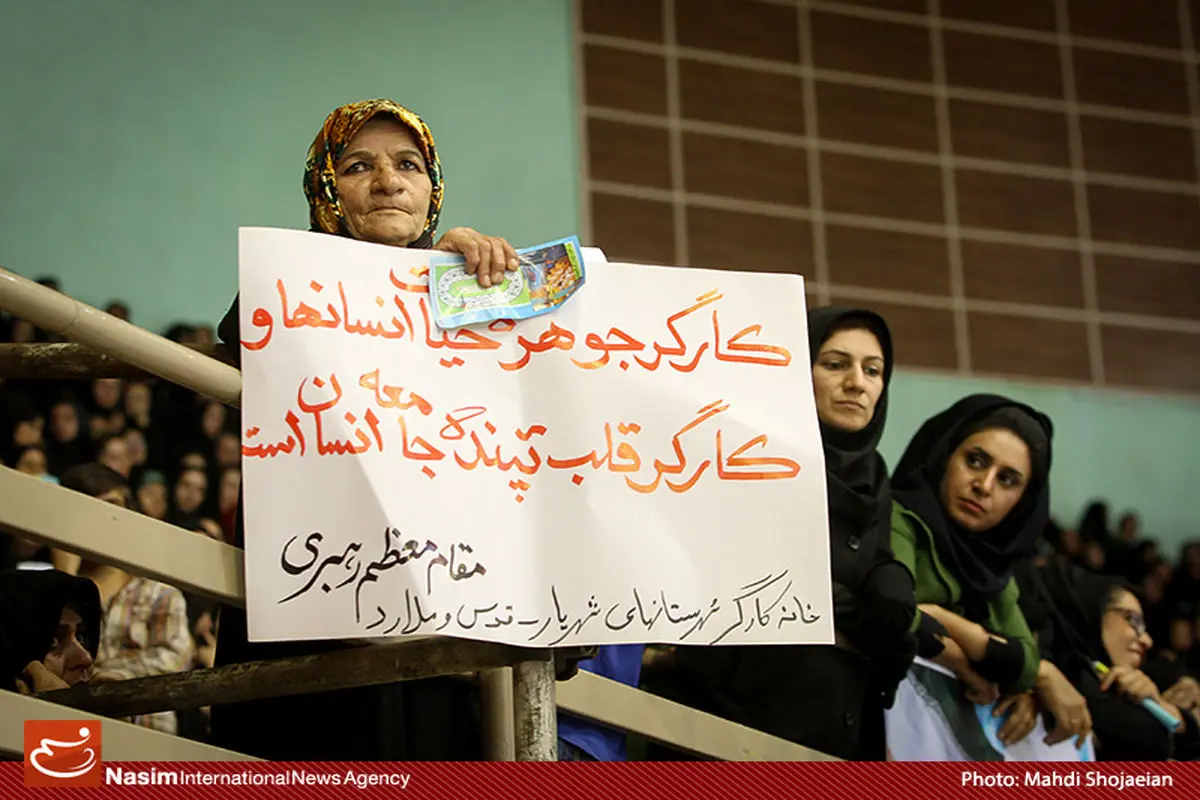 کارگر جوهره حیات انسانها و
کارگر قلب تپنده جامعه انسان است
مقام معظم رهبری
خانه کارگر شهرستانهای شهریار - قدس و ملارد
Nasim International News Agency
Photo: Mahdi Shojaeian